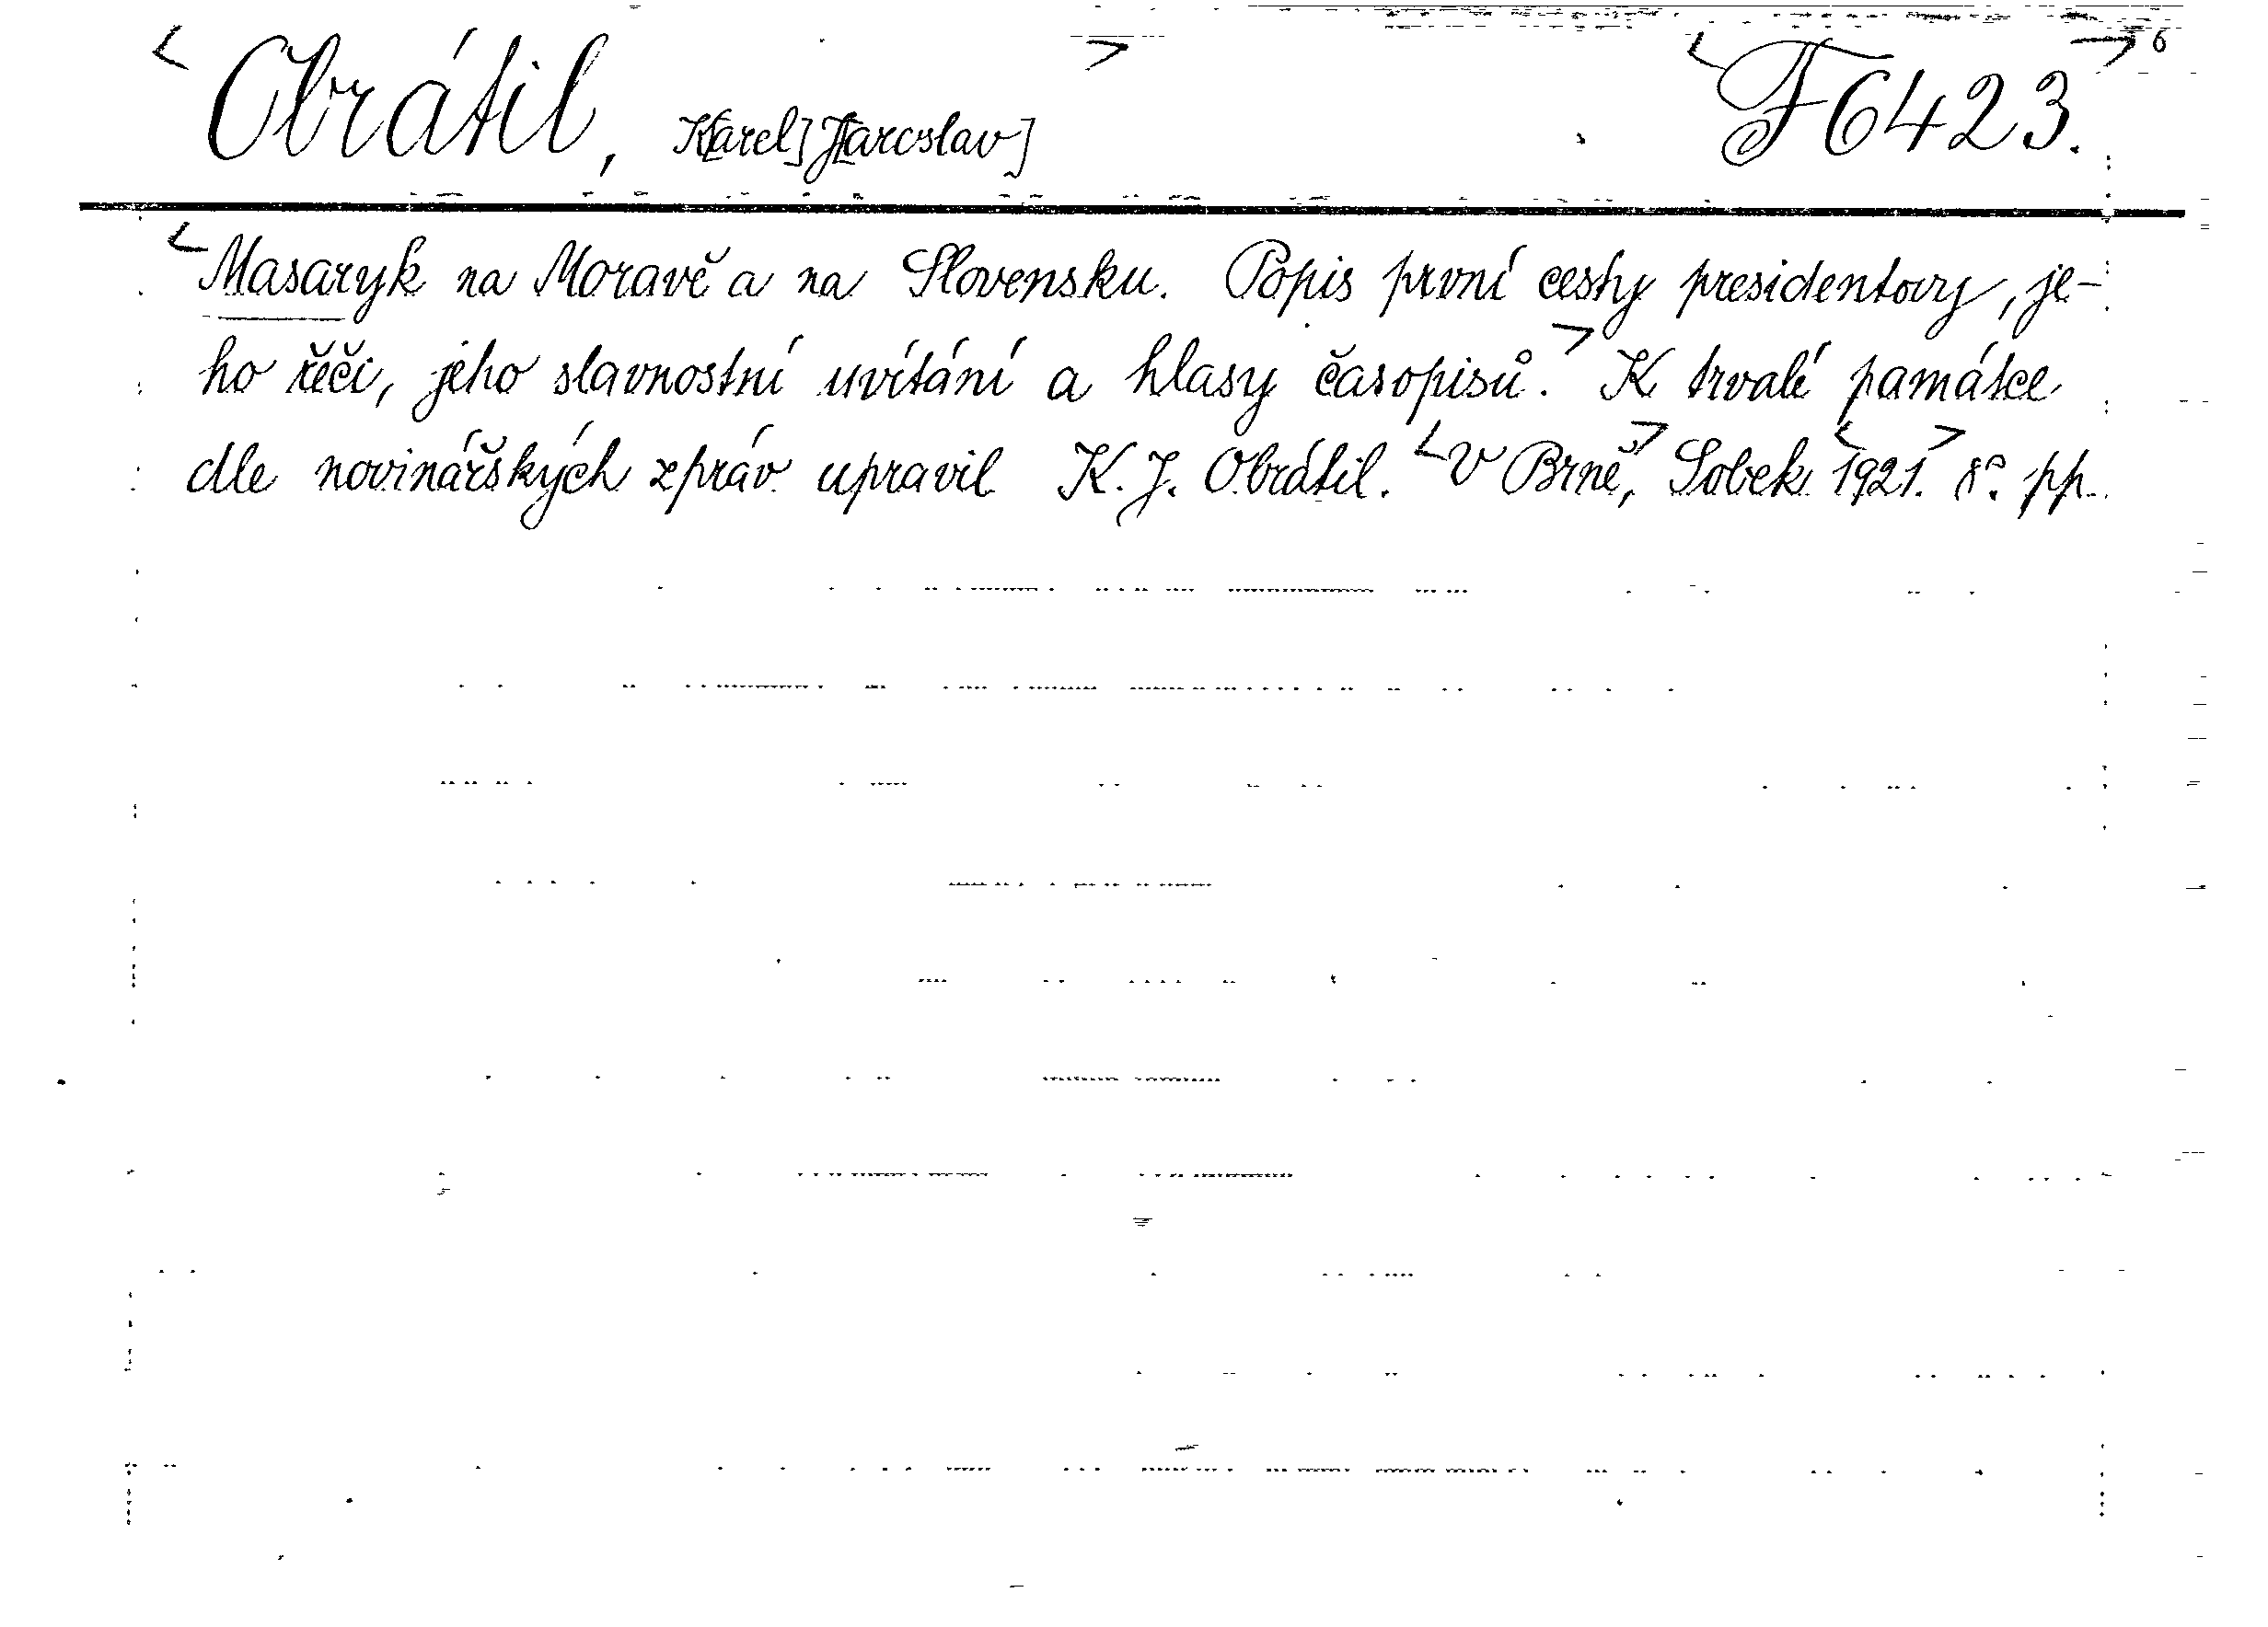 Obrátil, K[arel] J[aroslav] F6423. 6
Masaryk na Moravě a na Slovensku. Popis první cesty presidentovy, je-
ho řeči, jeho slavnostní uvítání a hlasy časopisů. K trvalé památce
dle novinářských zpráv upravil K. J. Obrátil. V Brně, Sobek 1921. 8°. pp.